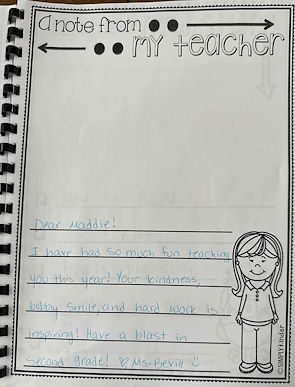 a note from
my teacher
Dear Maddie!
I have had so much fun teaching
you this year! Your kindness,
bubbly smile, and hard work is
inspiring! Have a blast in
second grade! ♡ Ms. Bevill ☺
©SIMPLYkinder